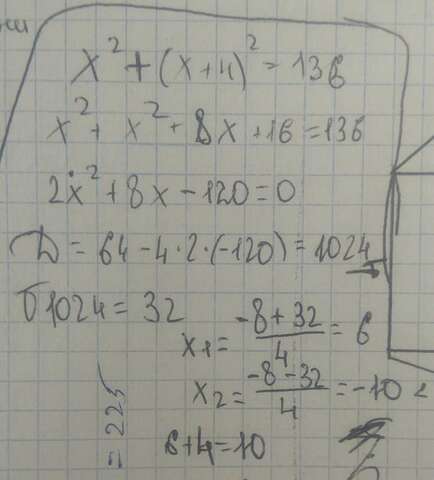 x² + (x+4)² = 136
x² + x² + 8x + 16 = 136
2x² + 8x - 120 = 0
D = 64 - 4·2·(-120) = 1024
√1024 = 32
x₁ = (-8+32)/4 = 6
x₂ = (-8-32)/4 = -10 <
6+4=10
= 225